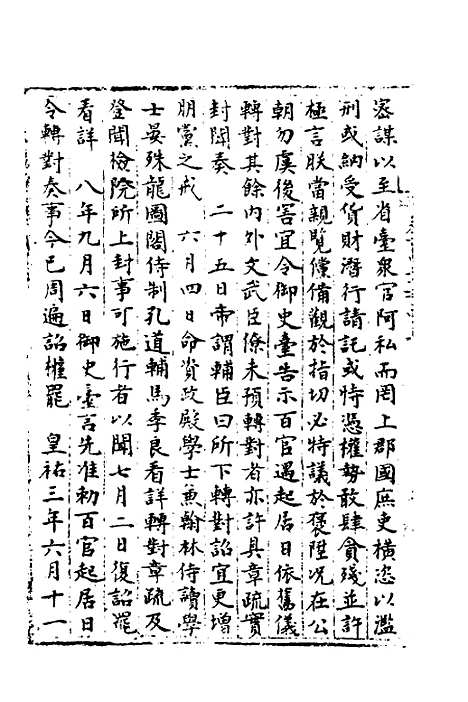 密謀以至省臺衆官阿私而罔上郡國庶吏橫恣以濫
刑或納受貨財潛行請託或恃憑權勢敢肆貪殘並許
極言朕當親覽儻備觀於指切必特議於褒陞况在公
朝勿虞後害宜令御史臺告示百官遇起居日依舊儀
轉對其餘内外文武臣僚未預轉對者亦許具章疏實
封聞奏　二十五日帝謂輔臣曰所下轉對詔宜更増
朋黨之戒　六月四日命資政殿學士兼翰林侍讀學
士晏殊龍圖閣侍制孔道輔馬季良看詳轉對章疏及
登聞檢院所上封事可施行者以聞七月二日復詔罷
看詳　八年九月六日御史臺言先准初百官起居日
令轉對奏事今已周遍詔權罷　皇祐三年六月十一